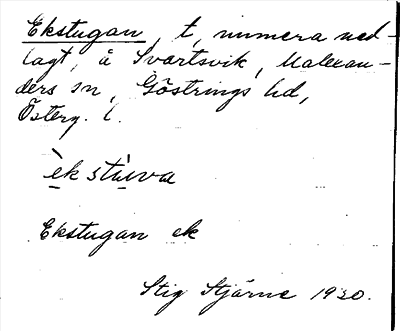 Ekstugan, t, numera ned-
lagt, å Svartsvik, Malexan-
ders sn, Göstrings hd,
Österg. l.
èkstùva
Ekstugan ek
Stig Stjärne 1930.